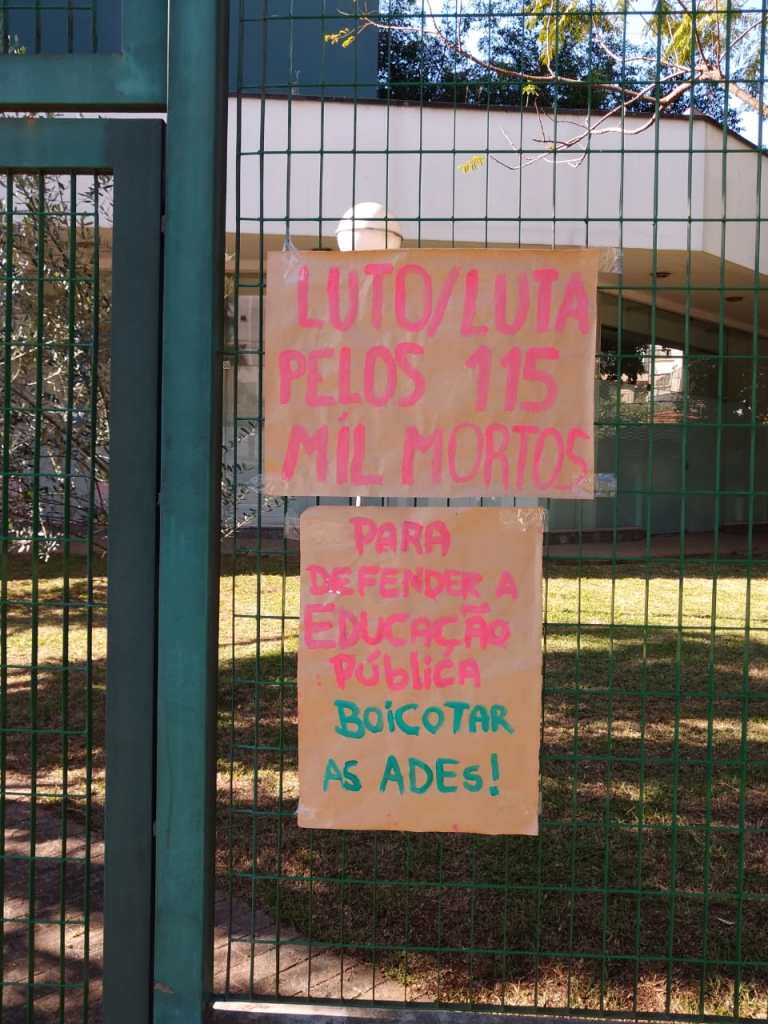 LUTO/LUTA
PELOS 115
MIL MORTOS
PARA
DEFENDER A
EDUCAÇÃO
PÚBLICA
BOICOTAR
AS ADEs!